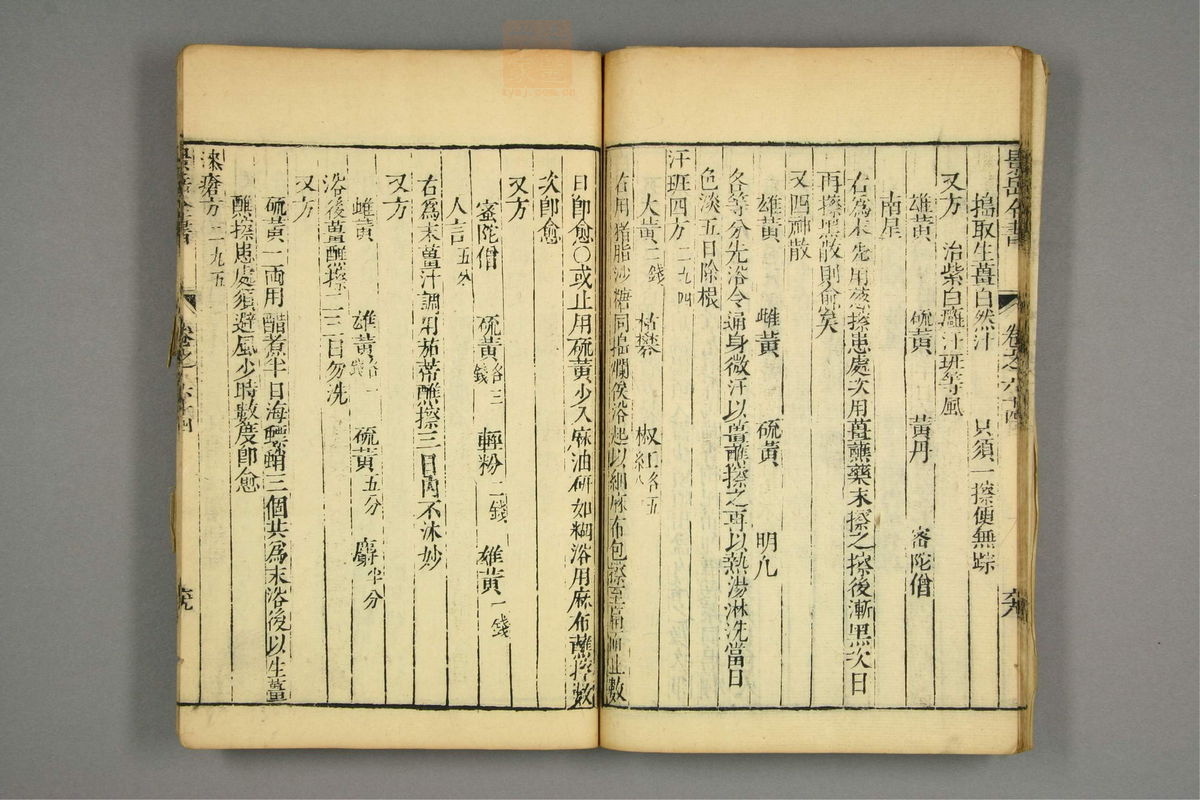 景岳全書 卷之六十四
搗取生薑自然汁 只須一擦便無踪
又方 治紫白癜汗班等風
雄黃 硫黃 黃丹 密陀僧
南星
右為末先用葱擦患處次用薑蘸藥末擦之擦後漸黑次日
再擦黑散則愈矣
又四神散
雄黃 雌黃 硫黃 明凡
各等分先浴令通身微汗以薑蘸擦之再以熱湯淋洗當日
色淡五日除根
汗班四方 二九四
大黃二錢 枯礬 椒紅各五
右用猪脂沙糖同搗爛俟浴起以細麻布包擦至 而止數
日卽愈○或止用硫黃少入麻油研如糊浴用麻布蘸擦數
次卽愈
又方
蜜陀僧 硫黃各三錢 輕粉二錢 雄黃一錢
人言五分
右為末薑汁調用茄蒂蘸擦三日內不沐妙
又方
雌黃 雄黃各一錢 硫黃五分 麝半分
浴後薑蘸擦二三日勿洗
又方
硫黃一両用醋煮半日海螵蛸三個共為末浴後以生薑
蘸擦患處須避風少時數度卽愈
漆瘡方 二九五
景岳全書 卷之六十四